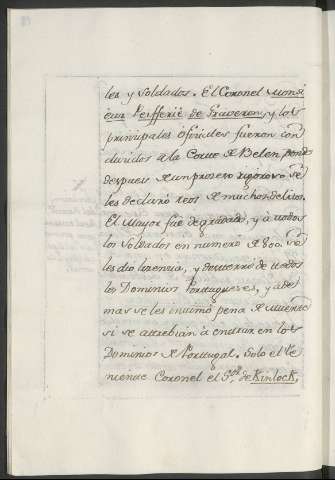 les y soldados. El Coronel Monsi
eur Peifferie de Graveron, y los
principales oficiales fueron con
ducidos a la Corte de Belen, 
despues de un proceso rigoroso se
les declaró reos de muchos delitos.
El mayor fue degradado, y à todos
los soldados en numero de 800. se
les dio licencia, y desterró de todos
los Dominios Portugueses, y ade
mas se les intimó pena de muerte
si se atrebian à entrar en los
Dominios de Portugal. Solo el te
niente Coronel el S.or de Kinlock,